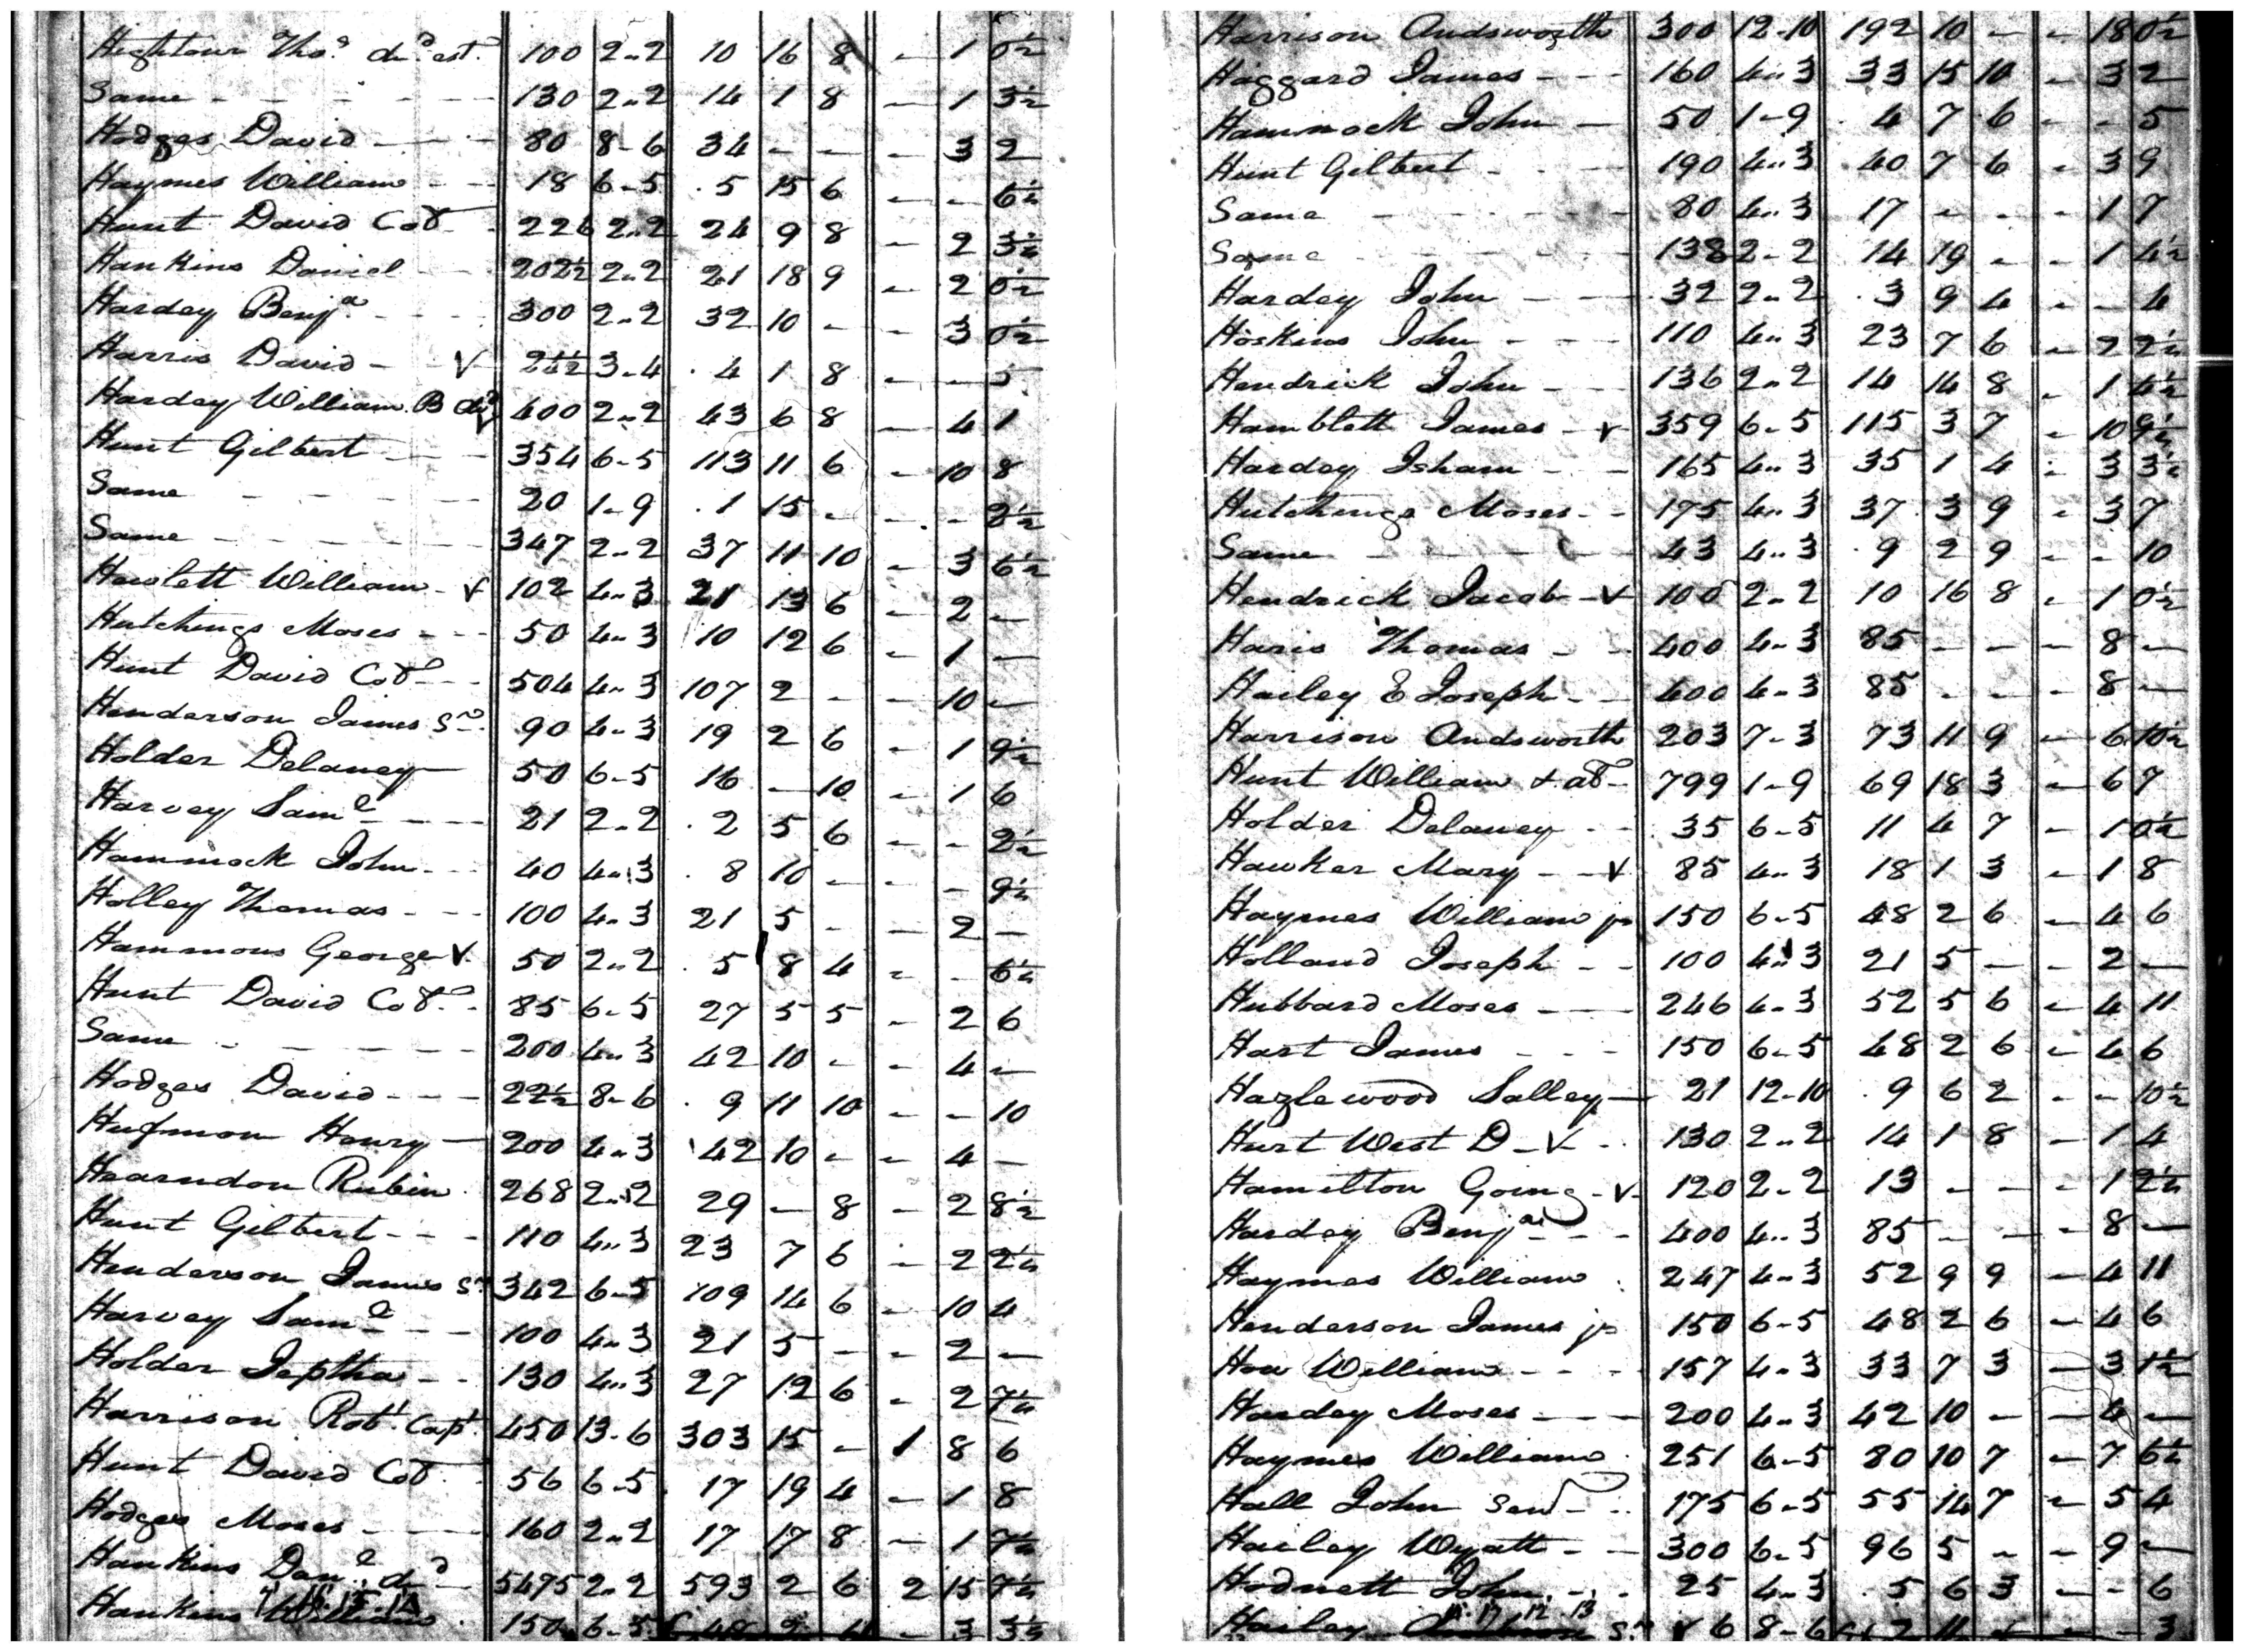 Hightour Tho.s dec.d est. 100 2..2 10 16 8 - 1 0½
Same - - - - - 130 2..2 14 1 8 - 1 3½
Hodges David - - - 80 8-6 34 - - - 3 2
Haymes William - - 18 6-5 5 15 6 - - 6½
Hunt David Col 226 2..2 24 9 8 - 2 3½
Hankins Daniel 202½ 2..2 21 18 9 - 2 0½
Hardey Benja - - - 300 2..2 32 10 - - 3 0½
Harris David - V 24½ 3-4 4 1 8 - - 5
Hardey William B dec.d V 400 2..2 43 6 8 - 4 1
Hunt Gilbert - - - 354 6-5 113 11 6 - 10 8
Same - - - - - 20 1-9 1 15 - - - 2½
Same - - - - - 347 2..2 37 11 10 - 3 6½
Hewlett William - V 102 4..3 21 13 6 - 2 -
Hutchings Moses - - - 50 4..3 10 12 6 - 1 -
Hunt David Col - - 504 4..3 107 2 - - 10 -
Henderson James Sr. 90 4..3 19 2 6 - 1 9½
Holder Delaney - 50 6-5 16 - 10 - 1 6
Harvey Saml - - - 21 2..2 2 5 6 - - 2½
Hammock John - - - 40 4..3 8 10 - - - 9½
Holley Thomas - - - 100 4..3 21 5 - - 2 -
Hammons George V 50 2..2 5 8 4 - - 6½
Hunt David Col - - 85 6-5 27 5 5 - 2 6
Same - - - - - 200 4..3 42 10 - - 4 -
Hodges David - - - 22½ 8-6 9 11 10 - - 10
Hufmon Henry - 200 4..3 42 10 - - 4 -
Hearndon Rubin 268 2..2 29 - 8 - 2 8½
Hunt Gilbert - - - 110 4..3 23 7 6 - 2 2½
Henderson James Sr 342 6-5 109 14 6 - 10 4
Harvey Saml - - 100 4..3 21 5 - - 2 -
Holder Jeptha - - 130 4..3 27 12 6 - 2 7½
Harrison Robt. Capt. 450 13-6 303 15 - 1 8 6
Hunt David Col 56 6-5 17 19 4 - 1 8
Hodges Moses - - - 160 2..2 17 17 8 - 1 7½
Hankins Danl. decd - 5475 2..2 593 2 6 2 15 7½
Hankins William 150 6-5
Harrison Andsworth 300 12-10 192 10 - - 18 0½
Haggard James - - - 160 4..3 33 15 10 - 3 2
Hammock John - 50 1-9 4 7 6 - - 5
Hunt Gilbert - - - 190 4..3 40 7 6 - 3 9
Same - - - - - 80 4..3 17 - - - 1 7
Same - - - - - 138 2-2 14 19 - - 1 4½
Hardey John - - - 32 2..2 3 9 4 - - 4
Hoskins John - - - 110 4..3 23 7 6 - 2 2½
Hendrick John - - 136 2..2 14 14 8 - 1 4½
Hamblett James - V 359 6-5 115 3 7 - 10 9½
Hardey Isham - - 165 4..3 35 1 4 - 3 3½
Hutchings Moses - - 175 4..3 37 3 9 - 3 7
Same - - - - - 43 4..3 9 2 9 - - 10
Hendrick Jacob - V 100 2..2 10 16 8 - 1 0½
Haris Thomas - - 400 4..3 85 - - - 8 -
Hailey E Joseph - - 400 4..3 85 - - - 8 -
Harrison Andsworth 203 7-3 73 11 9 - 6 10½
Hunt William + als - 799 1-9 69 18 3 - 6 7
Holder Delaney - - 35 6-5 11 4 7 - 1 0½
Hawker Mary - - V 85 4..3 18 1 3 - 1 8
Haymes William jr 150 6-5 48 2 6 - 4 6
Holland Joseph - - 100 4..3 21 5 - - 2 -
Hubbard Moses - - 246 4..3 52 5 6 - 4 11
Hart James - - - 150 6-5 48 2 6 - 4 6
Hazlewood Salley - 21 12-10 9 6 2 - - 10½
Hurt West D - V - 130 2..2 14 1 8 - 1 4
Hamilton Going - V - 120 2-2 13 - - - 1 2½
Hardey Benja - - - 400 4..3 85 - - - 8 -
Haymes William 247 4..3 52 9 9 - 4 11
Henderson James jr 150 6-5 48 2 6 - 4 6
How William - - - 157 4..3 33 7 3 - 3 1½
Hardey Moses - - - 200 4..3 42 10 - - 4 -
Haymes William 251 6-5 80 10 7 - 7 6½
Hall John Sen - - 175 6-5 55 14 7 - 5 4
Hailey Wyatt - - 300 6-5 96 5 - - 9 -
Hodnett John - - 25 4..3 5 6 3 - - 6
Hailey Sr 6 8-6